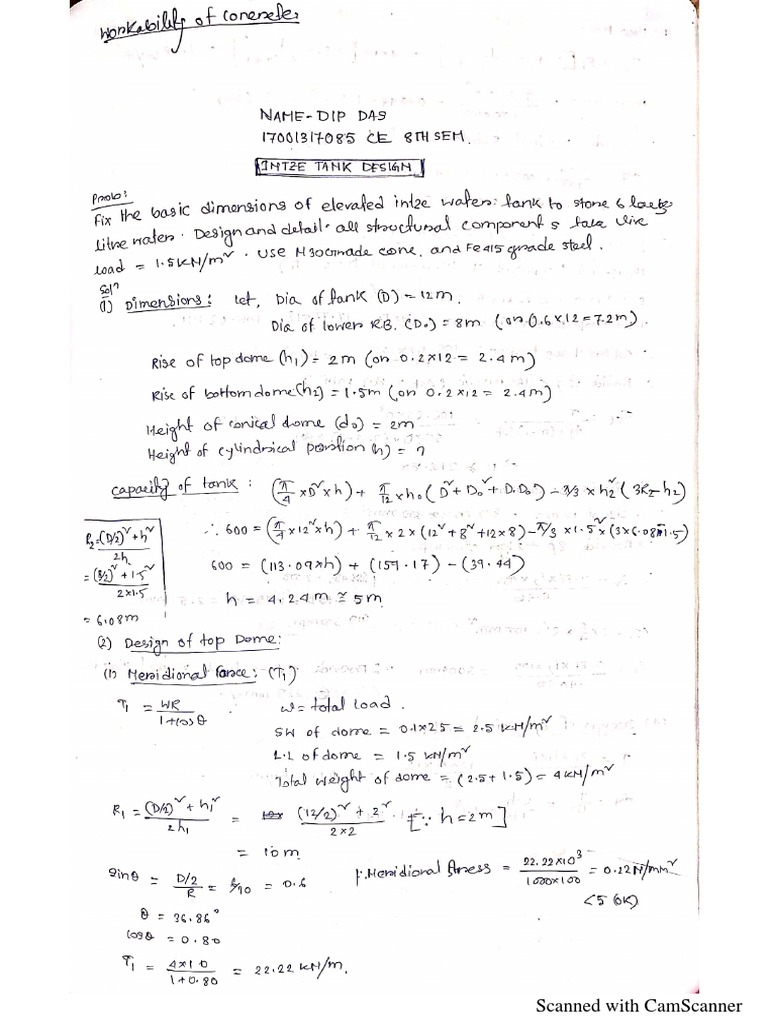 Workability of Concrete:
NAME- DIP DAS
17001317085 CE 8TH SEM.
INTZE TANK DESIGN
Prob:
Fix the basic dimensions of elevated intze water tank to store 6 lack
litre water. Design and detail all structural components take live
load = 1.5KN/m² . USE M30 Grade conc. and Fe415 grade steel.
Solⁿ
(1) Dimensions: let, Dia of tank (D) = 12m.
Dia of lower R.B. (D₀) = 8m (or 0.6×12 = 7.2m).
Rise of top dome (h₁) = 2m (or 0.2×12 = 2.4m)
Rise of bottom dome (h₂) = 1.5m (or 0.2×12 = 2.4m)
Height of conical dome (d₀) = 2m
Height of cylindrical portion (h) = ?
capacity of tank : (π/4 ×D²×h) + π/12 ×h₀ (D²+D₀²+D.D₀) - π/3 × h₂² (3R₂-h₂)
R₂ = ((D/2)²+h²)/2h
= ((8/2)²+1.5²)/(2×1.5)
= 6.08m
∴ 600 = (π/4 ×12²×h) + π/12 ×2×(12²+8²+12×8) - π/3 ×1.5²×(3×6.08-1.5)
600 = (113.09×h) + (159.17) - (39.44)
h = 4.24m ≃ 5m
(2) Design of top Dome:
(1) Meridional force: (T₁)
T₁ = WR/(1+cosθ)
W = total load.
SW of dome = 0.1×25 = 2.5 KN/m²
L.L of dome = 1.5 KN/m²
Total weight of dome = (2.5+1.5) = 4KN/m²
R₁ = ((D/2)²+h₁²)/2h₁ = ((12/2)²+2²)/(2×2) [∵ h=2m]
= 10m
sinθ = (D/2)/R = 6/10 = 0.6
∴ Meridional stress = (22.22×10³)/(1000×100) = 0.22N/mm²
<5 (OK)
θ = 36.86°
cosθ = 0.80
T₁ = (4×10)/(1+0.80) = 22.22 KN/m.
Scanned with CamScanner